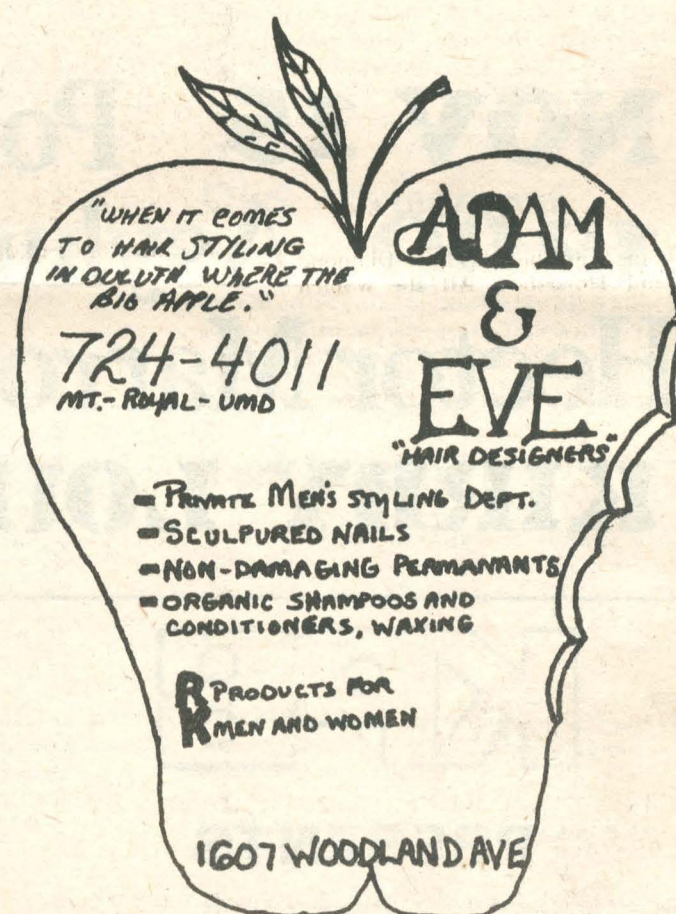 "WHEN IT COMES
TO HAIR STYLING
IN DULUTH WHERE THE
BIG APPLE."
724-4011
MT.-ROYAL-UMD
ADAM
&
EVE
"HAIR DESIGNERS"
-PRIVATE MEN'S STYLING DEPT.
-SCULPURED NAILS
-NON-DAMAGING PERMANANTS
-ORGANIC SHAMPOOS AND
CONDITIONERS, WAXING
RK PRODUCTS FOR
MEN AND WOMEN
1607 WOODLAND AVE